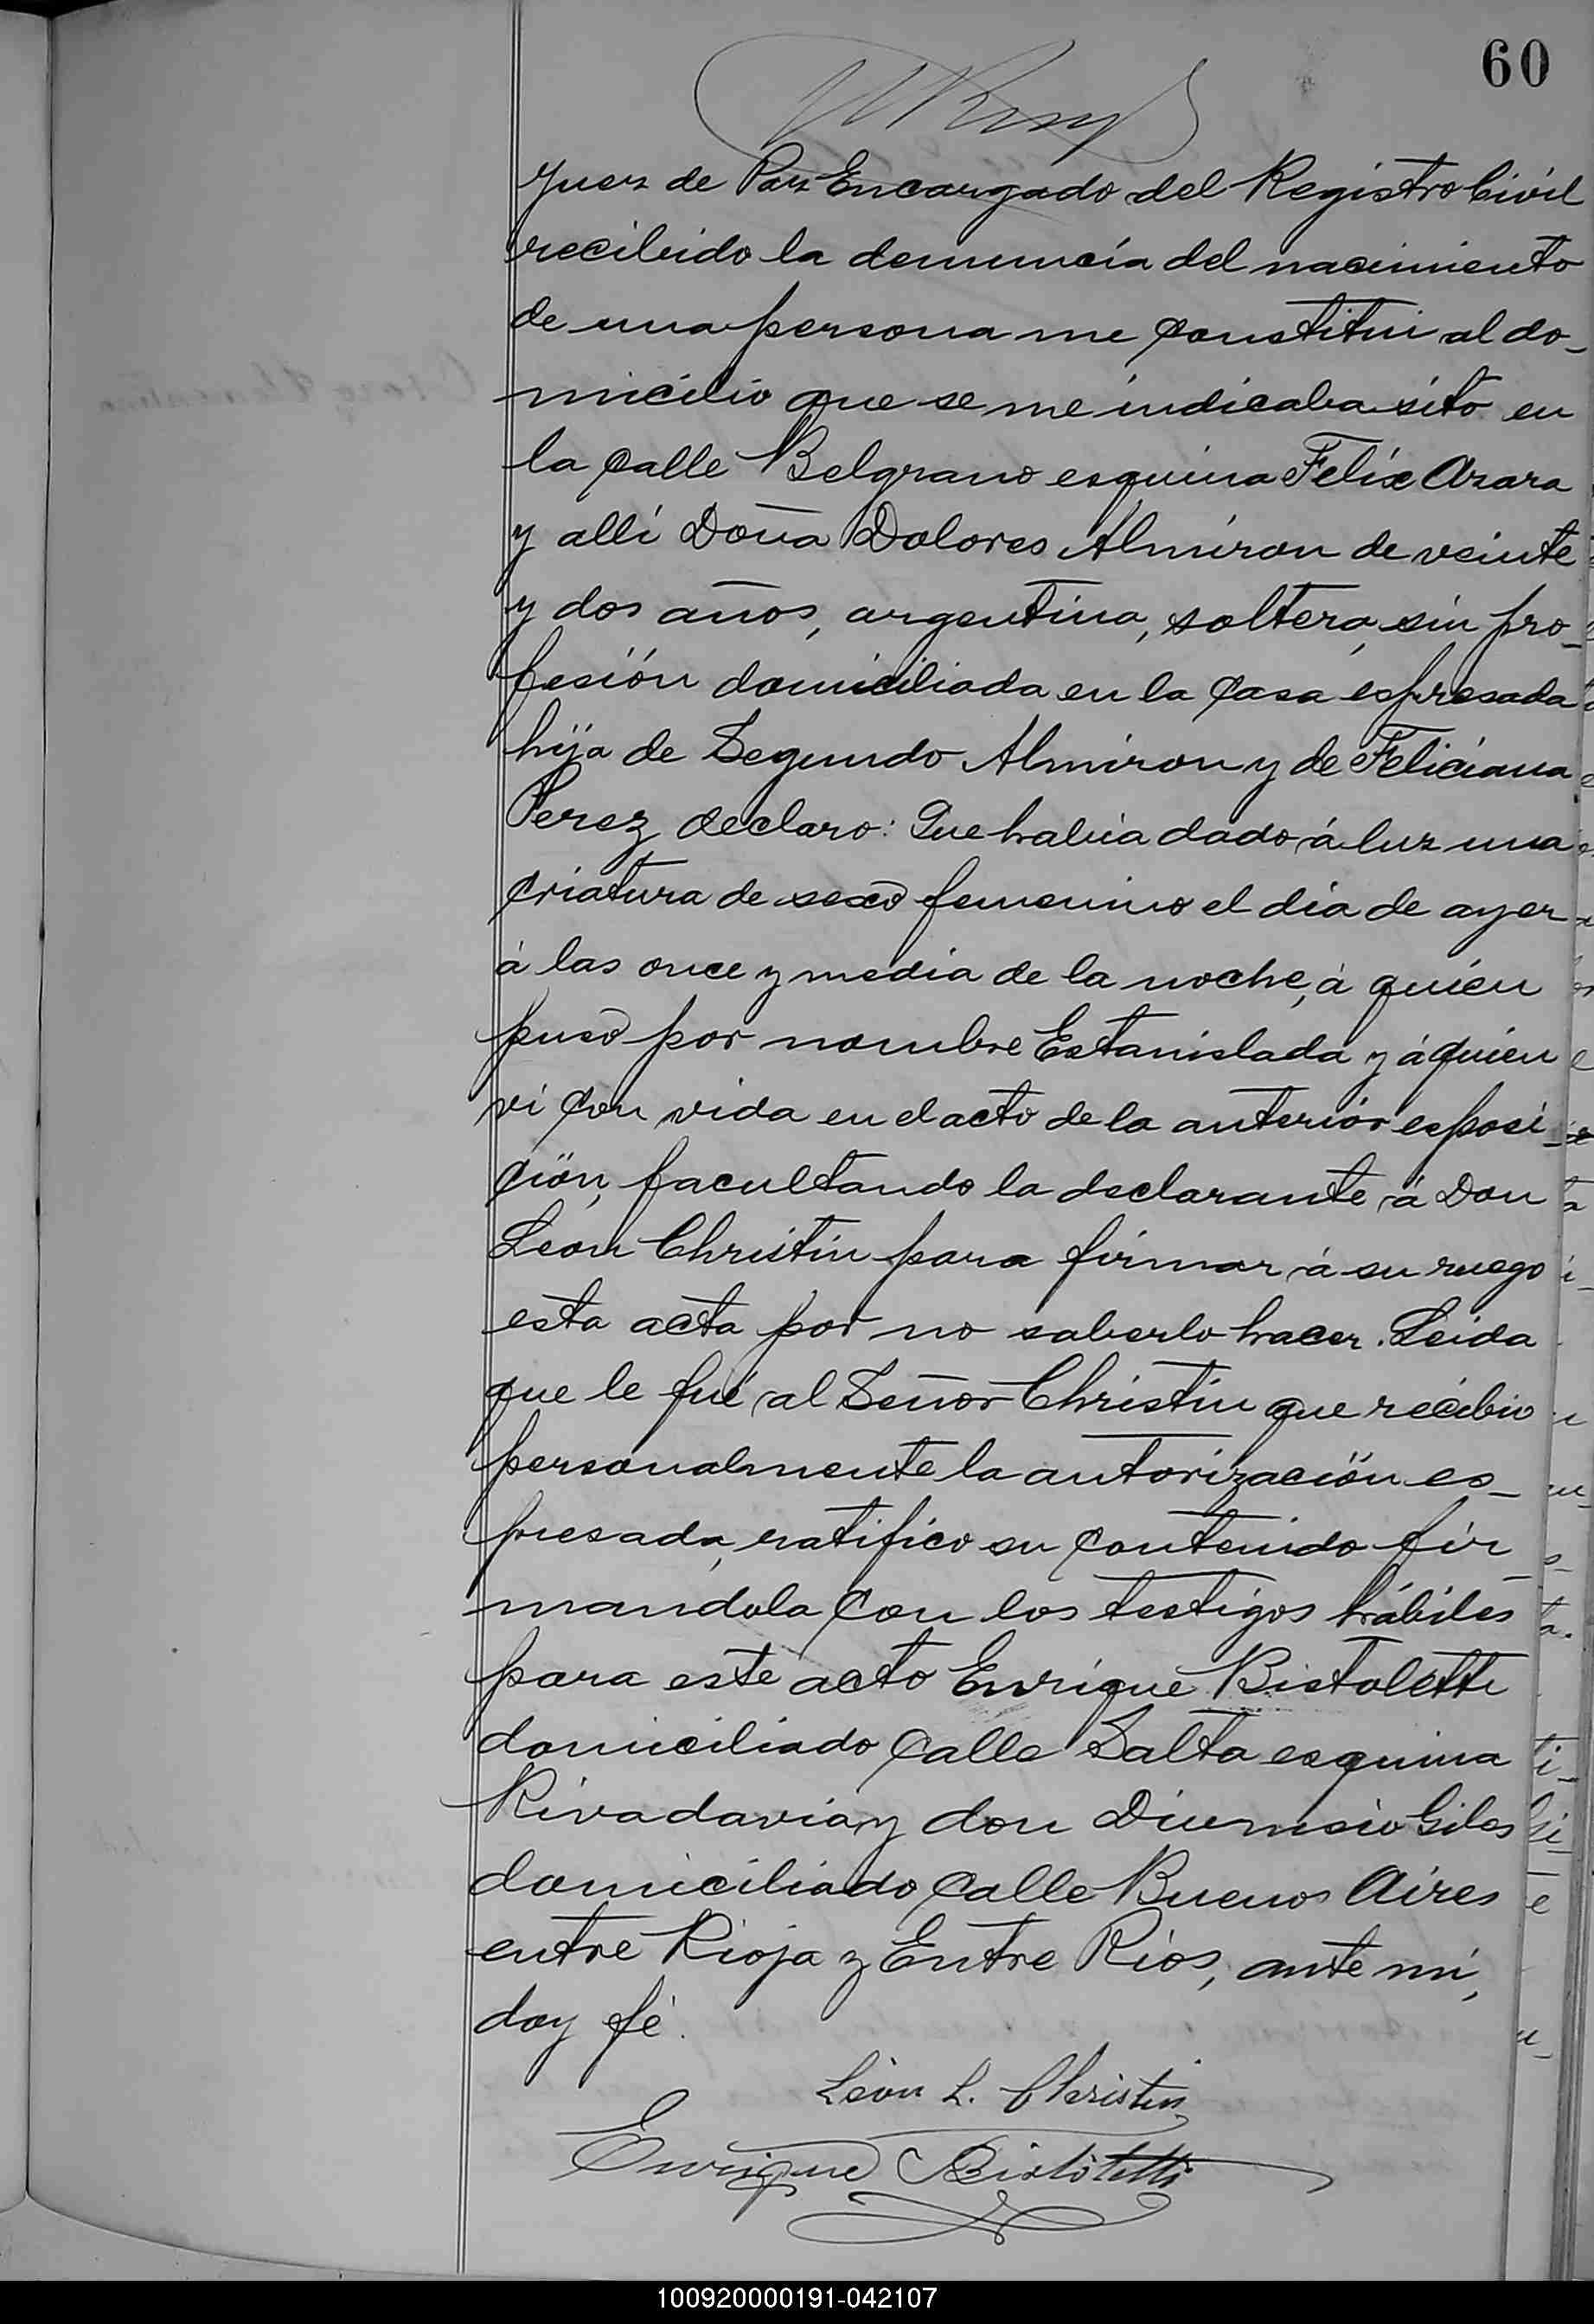 60
Juez de Paz Encargado del Registro Civil
recibido la denuncia del nacimiento
de una persona me constitui al do-
micilio que se me indicaba sito en
la calle Belgrano esquina Felix Azara
y alli Doña Dolores Almiron de veinte
y dos años, argentina, soltera, sin pro-
fesión domiciliada en la casa espresada
hija de Segundo Almiron y de Feliciana
Perez, declaro: Que habia dado á luz una
criatura de sexo femenino el dia de ayer
á las once y media de la noche, á quien
puso por nombre Estanislada y á quien
vi con vida en el acto de la anterior esposi-
ción, facultando la declarante á Don
León Christin para firmar á su ruego
esta acta por no saberlo hacer. Leida
que le fué al Señor Christin que recibio
personalmente la autorización es-
presada, ratifico su contenido fir-
mandola con los testigos hábiles
para este acto Enrique Bistoletti
domiciliado calle Salta esquina
Rivadavia y don Giles
domiciliado calle Buenos Aires
entre Rioja y Entre Rios, ante mi,
doy fé.
Léon L. Christin
Enrique Bistoletti
100920000191-042107